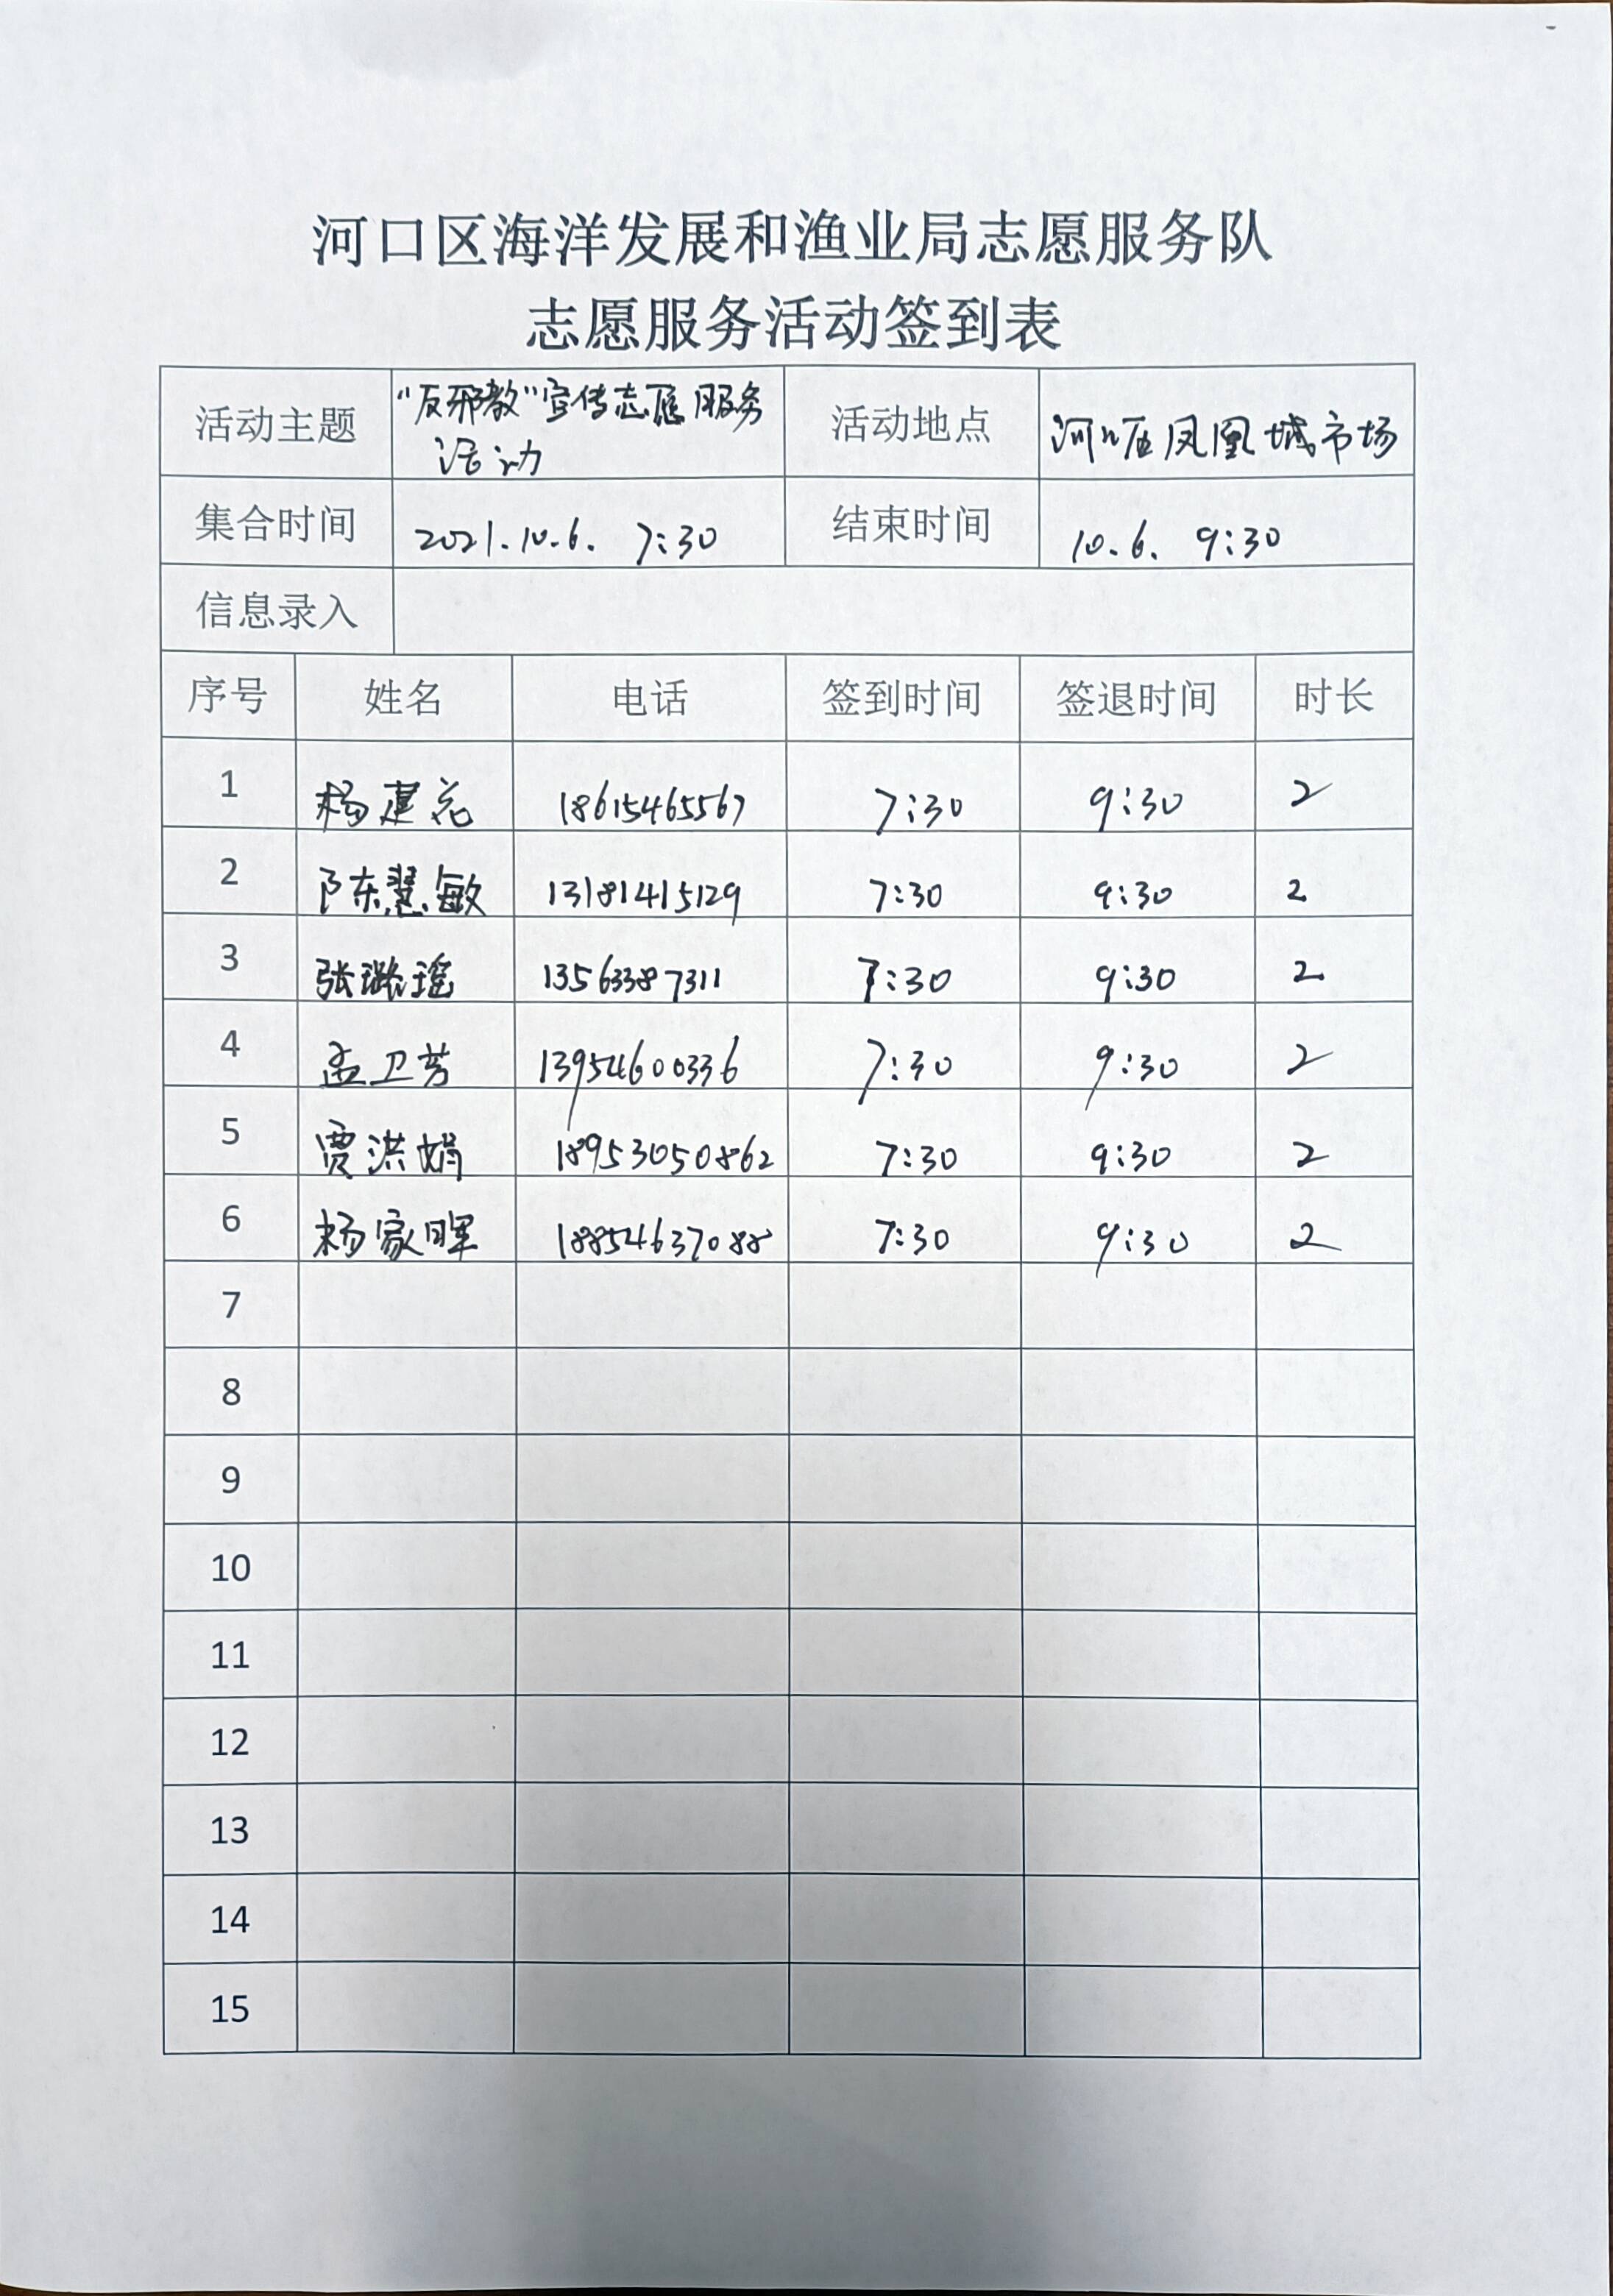 河口区海洋发展和渔业局志愿服务队
志愿服务活动签到表
活动主题 “反邪教”宣传志愿服务 活动地点 河口区凤凰城市场
活动
集合时间 2021.10.6. 7:30 结束时间 10.6. 9:30
信息录入
序号 姓名 电话 签到时间 签退时间 时长
1 杨建花 18615465567 7:30 9:30 2
2 陈慧敏 13181415129 7:30 9:30 2
3 张璐瑶 13563387311 7:30 9:30 2
4 孟卫芳 13954600336 7:30 9:30 2
5 贾洪娟 18953050862 7:30 9:30 2
6 杨家晖 18854637088 7:30 9:30 2
7
8
9
10
11
12
13
14
15